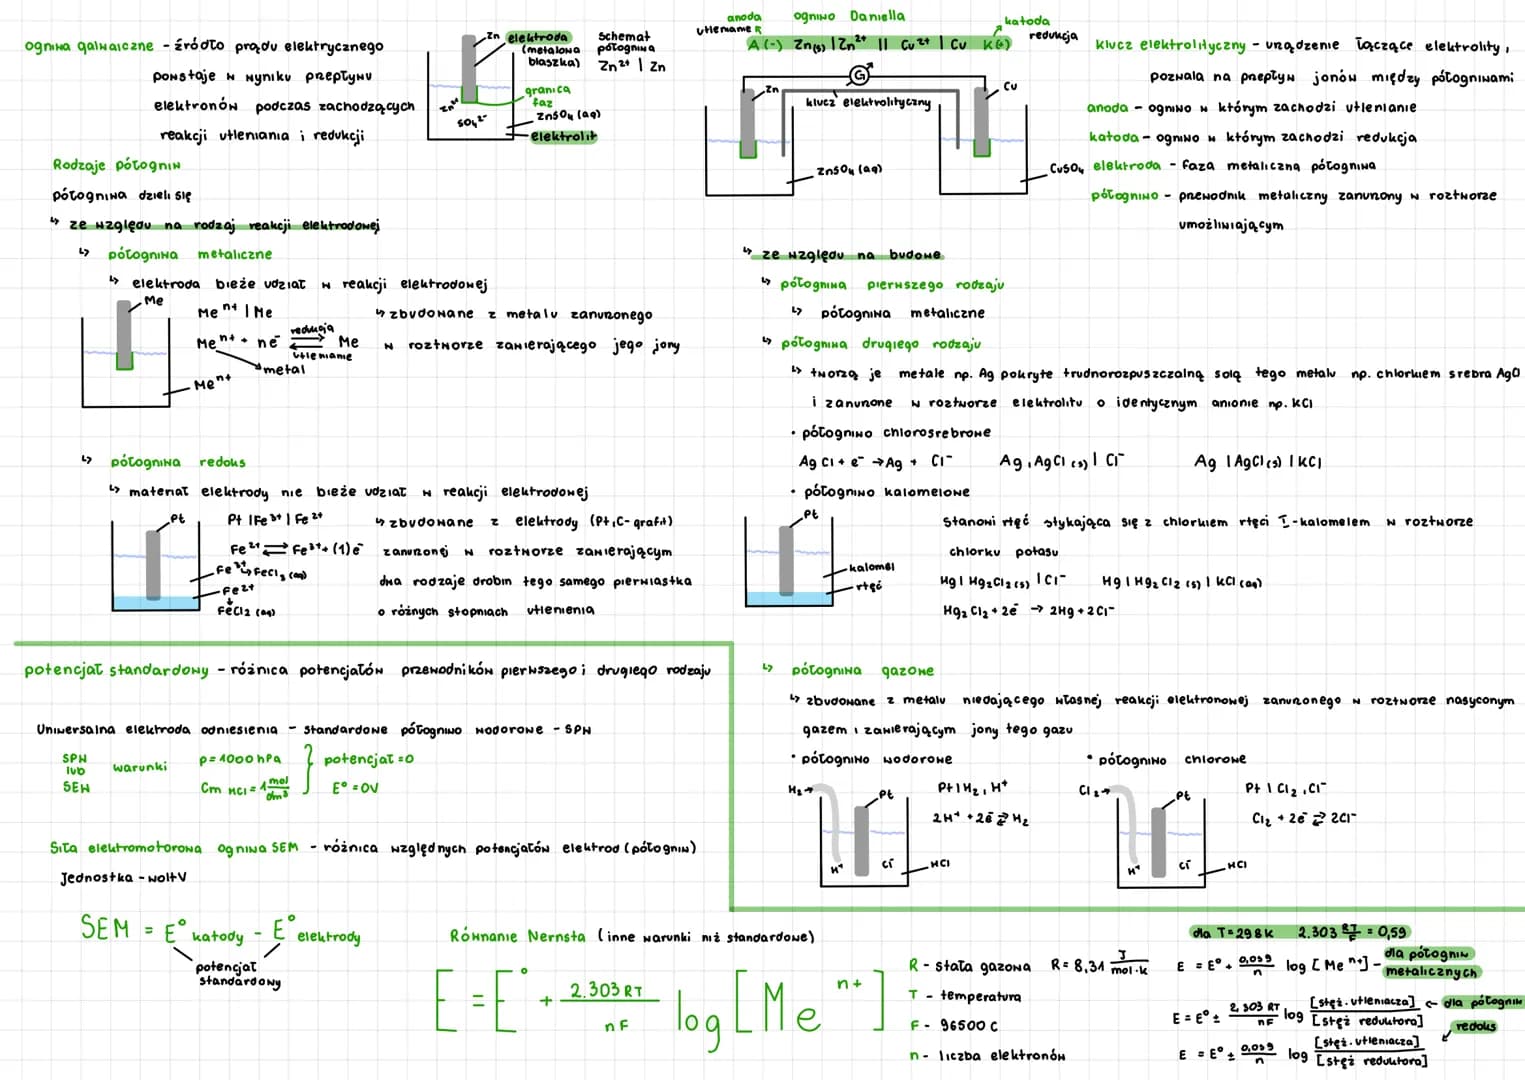 ogniwa galwaiczne - źródło prądu elektrycznego
powstaje w wyniku przepływu
elektronów podczas zachodzących
reakcji utleniania i redukcji
Zn
elektroda
(metalowa
blaszka)
granica
faz
ZnSO4 (aq)
elektrolit
Zn2+
SO4 2-
Schemat
półogniwa
Zn2+ | Zn
ogniwo Daniella
anoda
utlenianie
katoda
redukcja
A(-) Zn(s) | Zn2+ || Cu2+ | Cu K(+)
G
Zn
klucz elektrolityczny
Cu
ZnSO4 (aq)
CuSO4
klucz elektrolityczny - urządzenie łączące elektrolity,
pozwala na przepływ jonów między półogniwami
anoda - ogniwo w którym zachodzi utlenianie
katoda - ogniwo w którym zachodzi redukcja
elektroda - faza metaliczna półogniwa
półogniwo - przewodnik metaliczny zanurzony w roztworze
umożliwiającym
Rodzaje półogniw
półogniwa dzieli się
↳ ze względu na rodzaj reakcji elektrodowej
↳ półogniwa metaliczne
↳ elektroda bieże udział w reakcji elektrodowej
Me
Me n+ | Me
Me n+ + ne- redukcja ⇄ utlenianie Me
metal
Me n+
↳ zbudowane z metalu zanurzonego
w roztworze zawierającego jego jony
↳ półogniwa redoks
↳ materiał elektrody nie bieże udział w reakcji elektrodowej
Pt
Pt | Fe3+ | Fe2+
Fe2+ ⇄ Fe3+ + (1)e-
Fe3+ ↳ FeCl3 (aq)
Fe2+
↓
FeCl2 (aq)
↳ zbudowane z elektrody (Pt, C- grafit)
zanurzonej w roztworze zawierającym
dwa rodzaje drobin tego samego pierwiastka
o różnych stopniach utlenienia
↳ ze względu na budowe
↳ półogniwa pierwszego rodzaju
↳ półogniwa metaliczne
↳ półogniwa drugiego rodzaju
↳ tworzą je metale np. Ag pokryte trudnorozpuszczalną solą tego metalu np. chlorkiem srebra AgCl
i zanurzone w roztworze elektrolitu o identycznym anionie np. KCl
• półogniwo chlorosrebrowe
AgCl + e- → Ag + Cl- Ag, AgCl (s) | Cl- Ag | AgCl(s) | KCl
• półogniwo kalomelowe
Pt
kalomel
rtęć
Stanowi rtęć stykająca się z chlorkiem rtęci I-kalomelem w roztworze
chlorku potasu
Hg | Hg2Cl2 (s) | Cl- Hg | Hg2Cl2 (s) | KCl (aq)
Hg2Cl2 + 2e- → 2Hg + 2Cl-
potencjał standardowy - różnica potencjałów przewodników pierwszego i drugiego rodzaju
Uniwersalna elektroda odniesienia - standardowe półogniwo wodorowe - SPW
SPW
lub
SEW
warunki
p= 1000 hPa
Cm HCl = 1 mol/dm3
potencjał = 0
E° = 0V
Siła elektromotorowa ogniwa SEM - różnica względnych potencjałów elektrod (półogniw)
Jednostka - wolt V
SEM = E° katody - E° elektrody
potencjał
standardowy
↳ półogniwa gazowe
↳ zbudowane z metalu niedającego własnej reakcji elektronowej zanurzonego w roztworze nasyconym
gazem i zawierającym jony tego gazu
• półogniwo wodorowe
H2 →
Pt
H+
Cl-
HCl
Pt | H2, H+
2H+ + 2e- ⇄ H2
• półogniwo chlorowe
Cl2 →
Pt
H+
Cl-
HCl
Pt | Cl2, Cl-
Cl2 + 2e- ⇄ 2Cl-
Równanie Nernsta (inne warunki niż standardowe)
E = E° + 2.303 RT / nF log [Me n+]
R - stała gazowa R = 8,31 J/mol·k
T - temperatura
F - 96500 C
n - liczba elektronów
dla T=298K 2.303 RT/F = 0,59
E = E° + 0,059/n log [Me n+] - dla półogniw metalicznych
E = E° ± 2,303 RT/nF log [stęż. utleniacza]/[stęż reduktora] ← dla półogniw redoks
E = E° ± 0,059/n log [stęż. utleniacza]/[stęż reduktora]